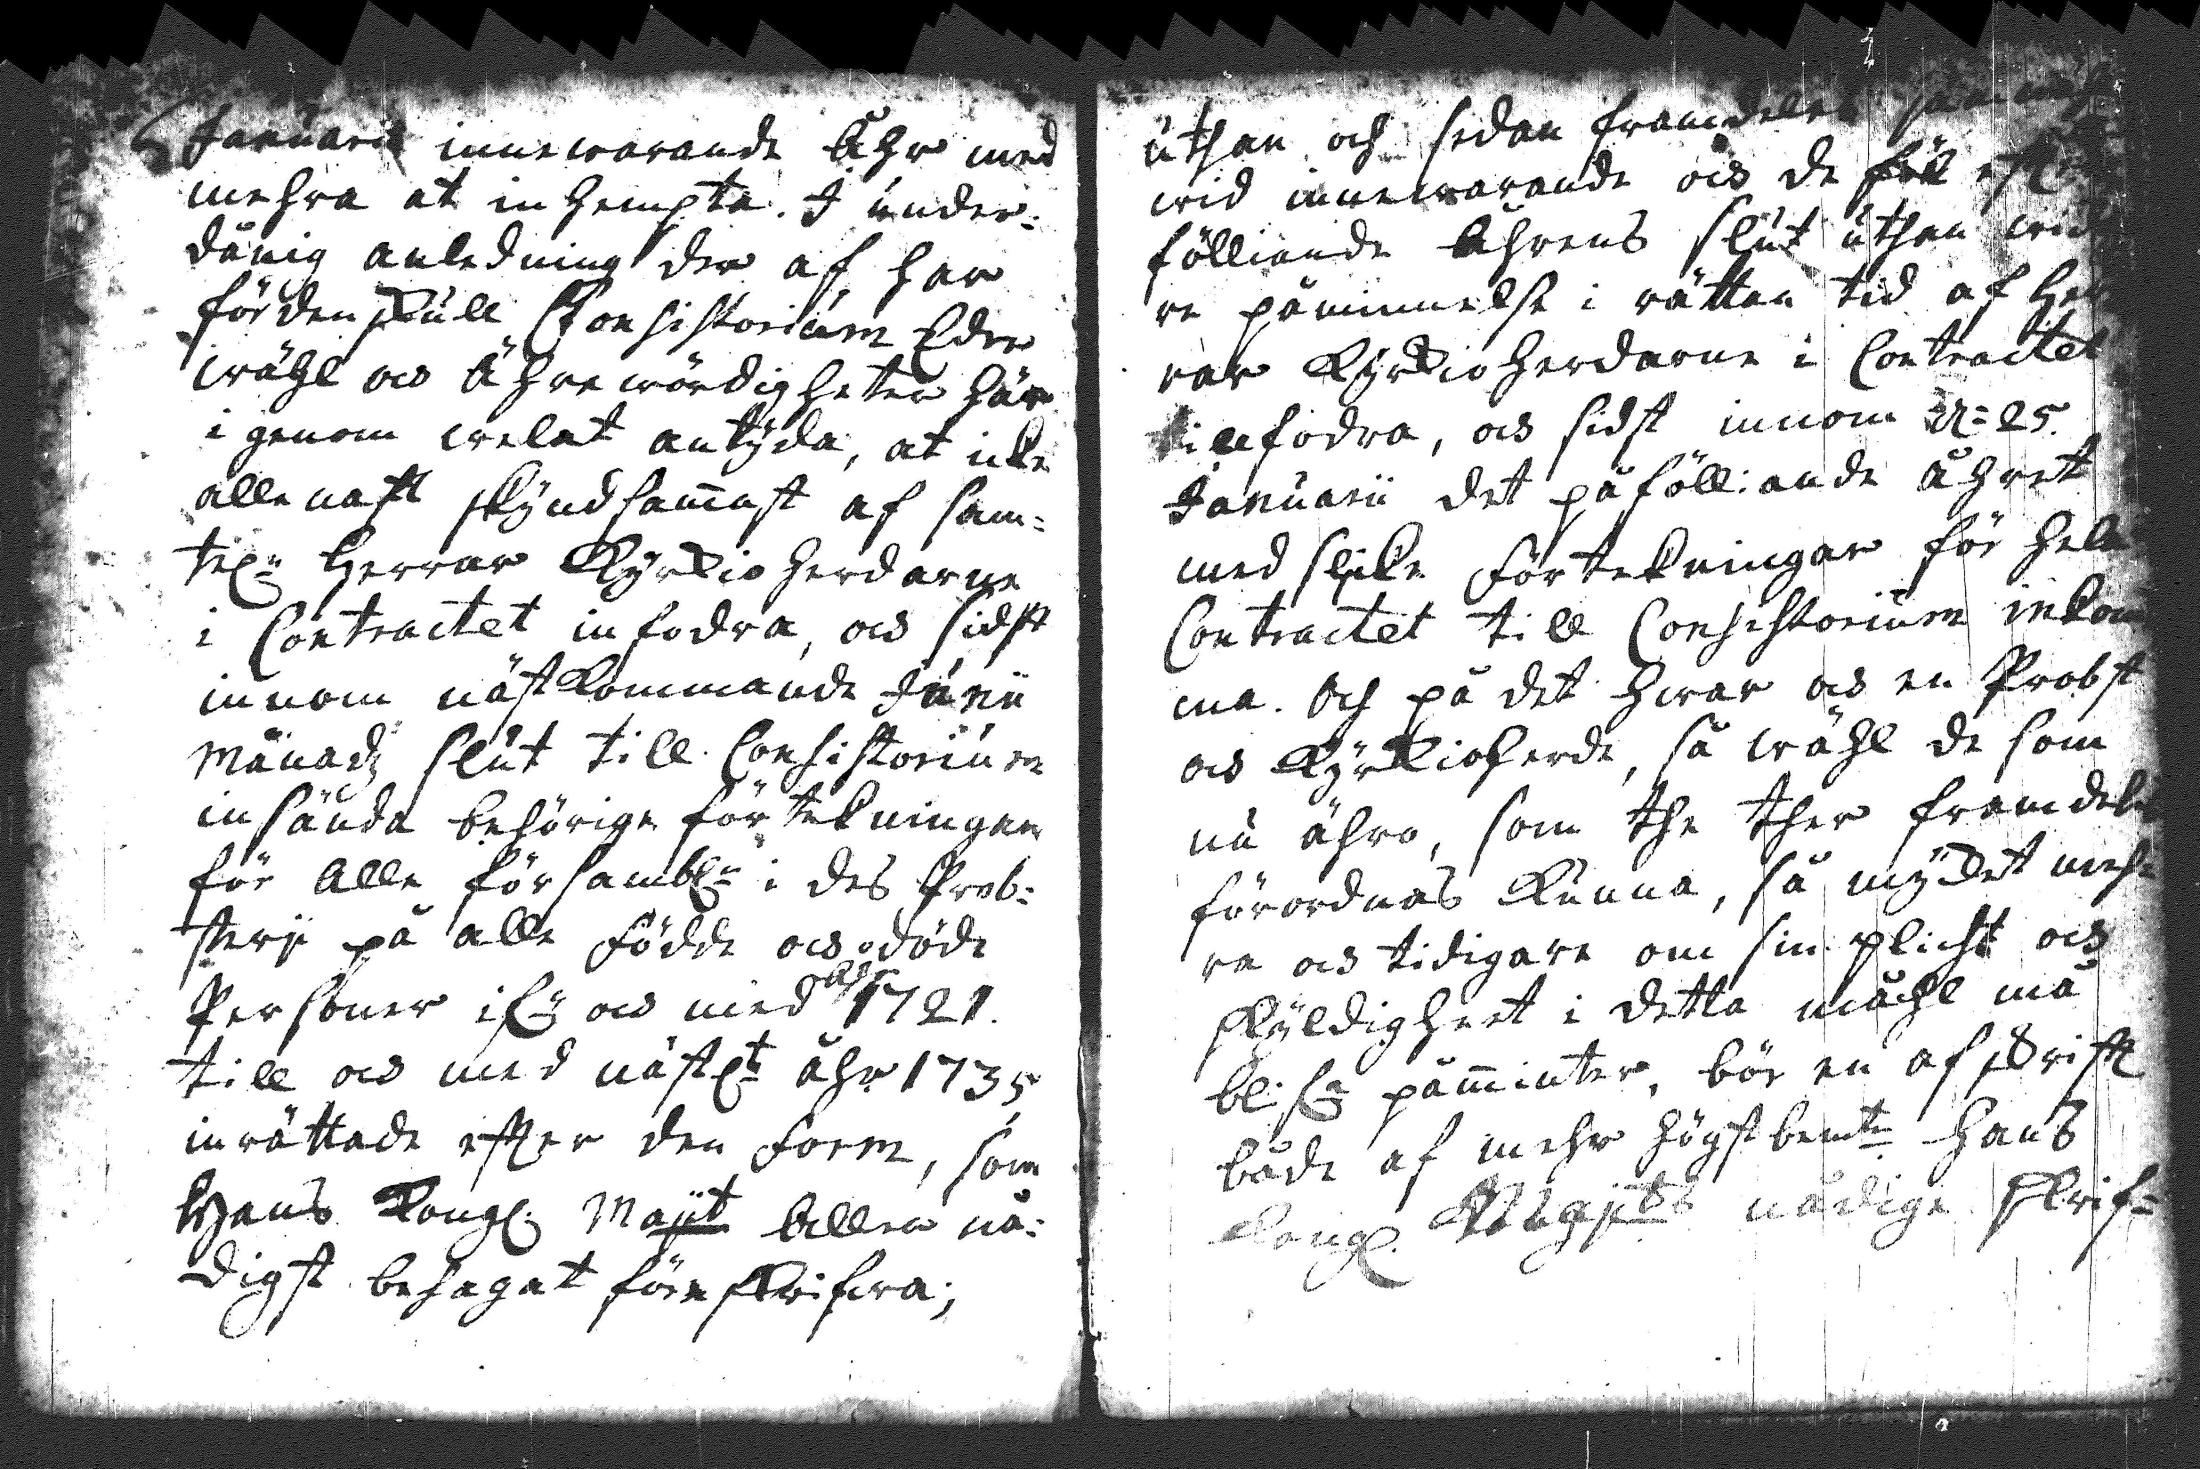 Januarii innewarande Åhr med
mehra at inhempta. I under=
dånig anledning der af har
förden skull Consistorium Eder
wähl och Ährewördigheter här
igenom welat antyda, at icke
allenast skyndsammast af sam=
tel:n Herrar Kyrkioherdarne
i Contractet infodra, och sidst
innom nästkommande Junii
Månadz slut till Consistorium
insända behörige förtekningar
för Alle försambl:r i des Prob=
sterij på alle födde och döde
Personer ifrån och med åhr 1721.
till och med nästl:t åhr 1735
inrättade efter den Form, som
Hans Kongl. Maj:t Allernå=
digst behagat föreskrifwa;
uthan och sedan framdeles
wid innewarande och de
fölliande Åhrens slut uthan wid
re påminnelse i rättan tid af Her
rar Kyrkioherdarne i Contractet
infodra, och sidst innom d: 25.
Januarii det påfölliande åhret
med slike förtekningar för hela
Contractet till Consistorium inkom
ma. Och på det hwar och en Probst
och Kyrkioherde, så wähl de som
nu ähro, som the ther framdeles
förordnas kunna, så mycket meh=
re och tidigare om sin plicht och
skyldigheet i detta måhl må
blifwa påminter, bör en afskrift
både af mehr högstbem:te Hans
Kongl. Maj:ts nådige skrif=